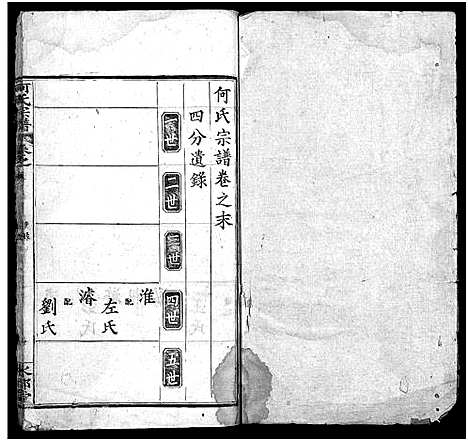 何氏宗譜卷之末
四分遺錄
一世
二世
三世
四世
五世
淮
配
左氏
濬
配
劉氏
何氏宗譜